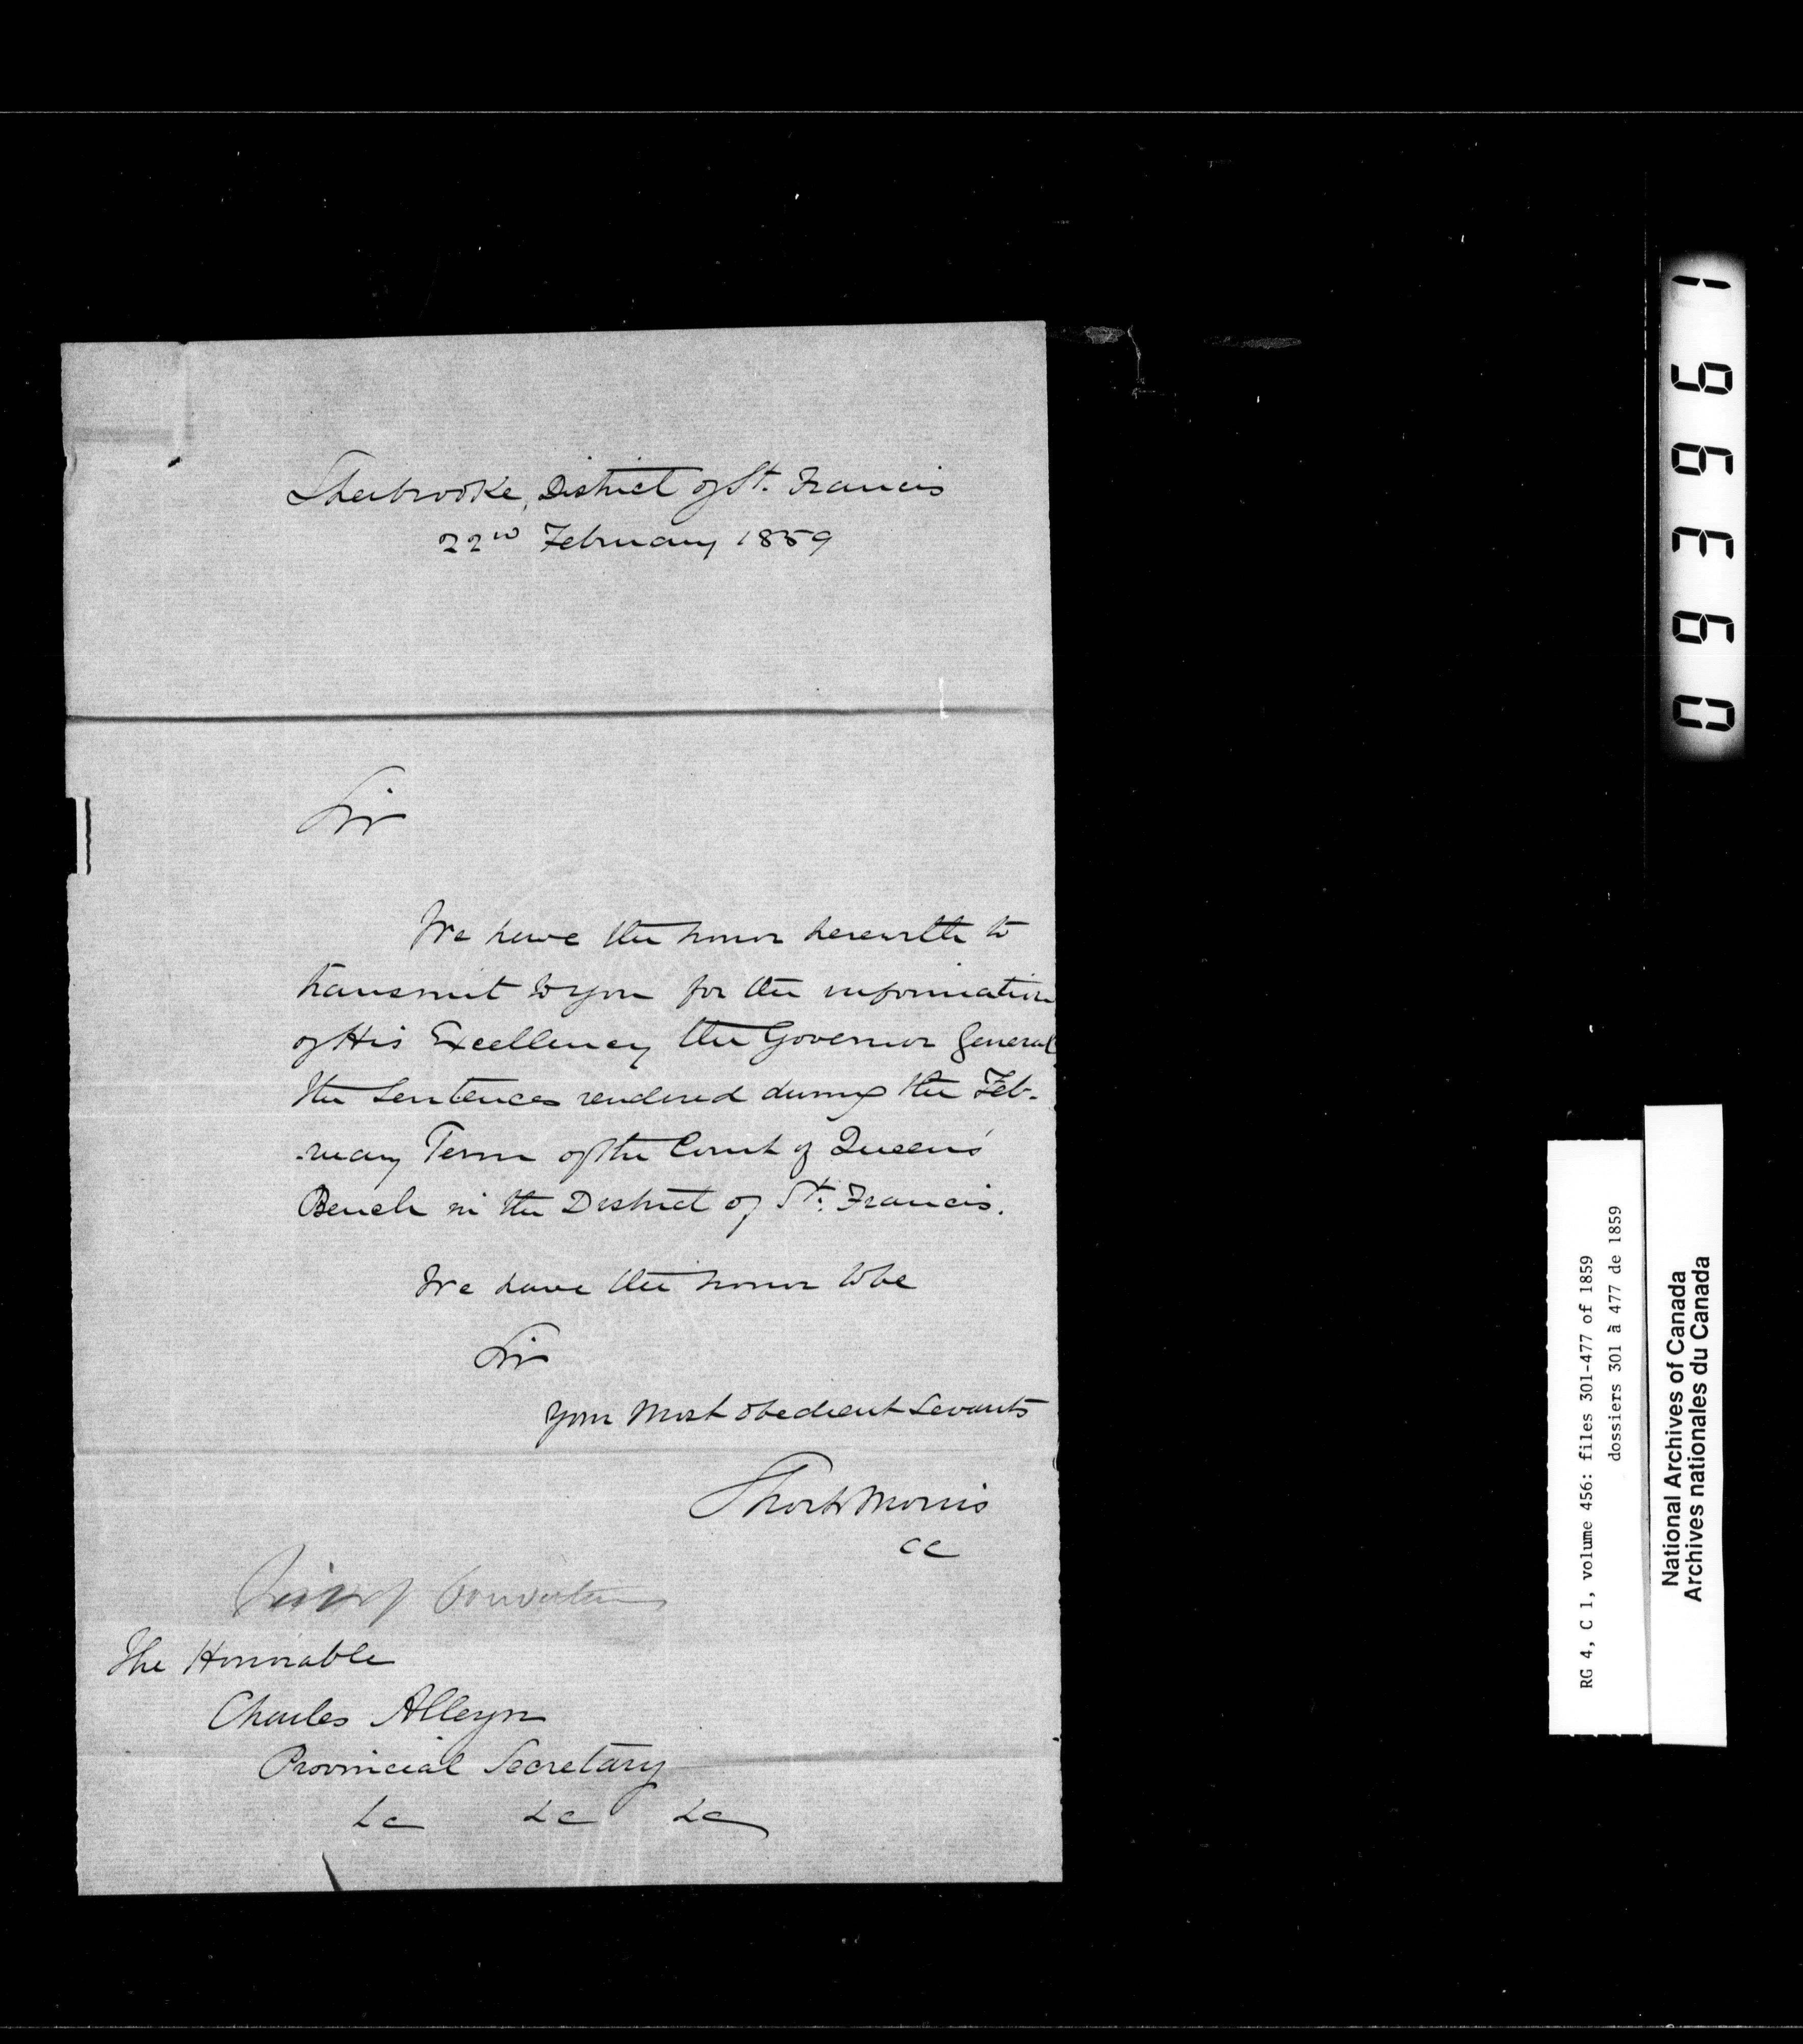 Sherbrooke, District of St. Francis
22nd February 1859
Sir
We have the honor herewith to
transmit to you for the information
of His Excellency the Governor General
the Sentences rendered during the Feb-
-ruary Term of the Court of Queens'
Bench in the District of St. Francis.
We have the honor to be
Sir
Your Most Obedient Servants
Short & Morris
CC
The Honorable
Charles Alleyn
Provincial Secretary
&c &c &c
RG 4, C 1, volume 456: files 301-477 of 1859
dossiers 301 à 477 de 1859
National Archives of Canada
Archives nationales du Canada